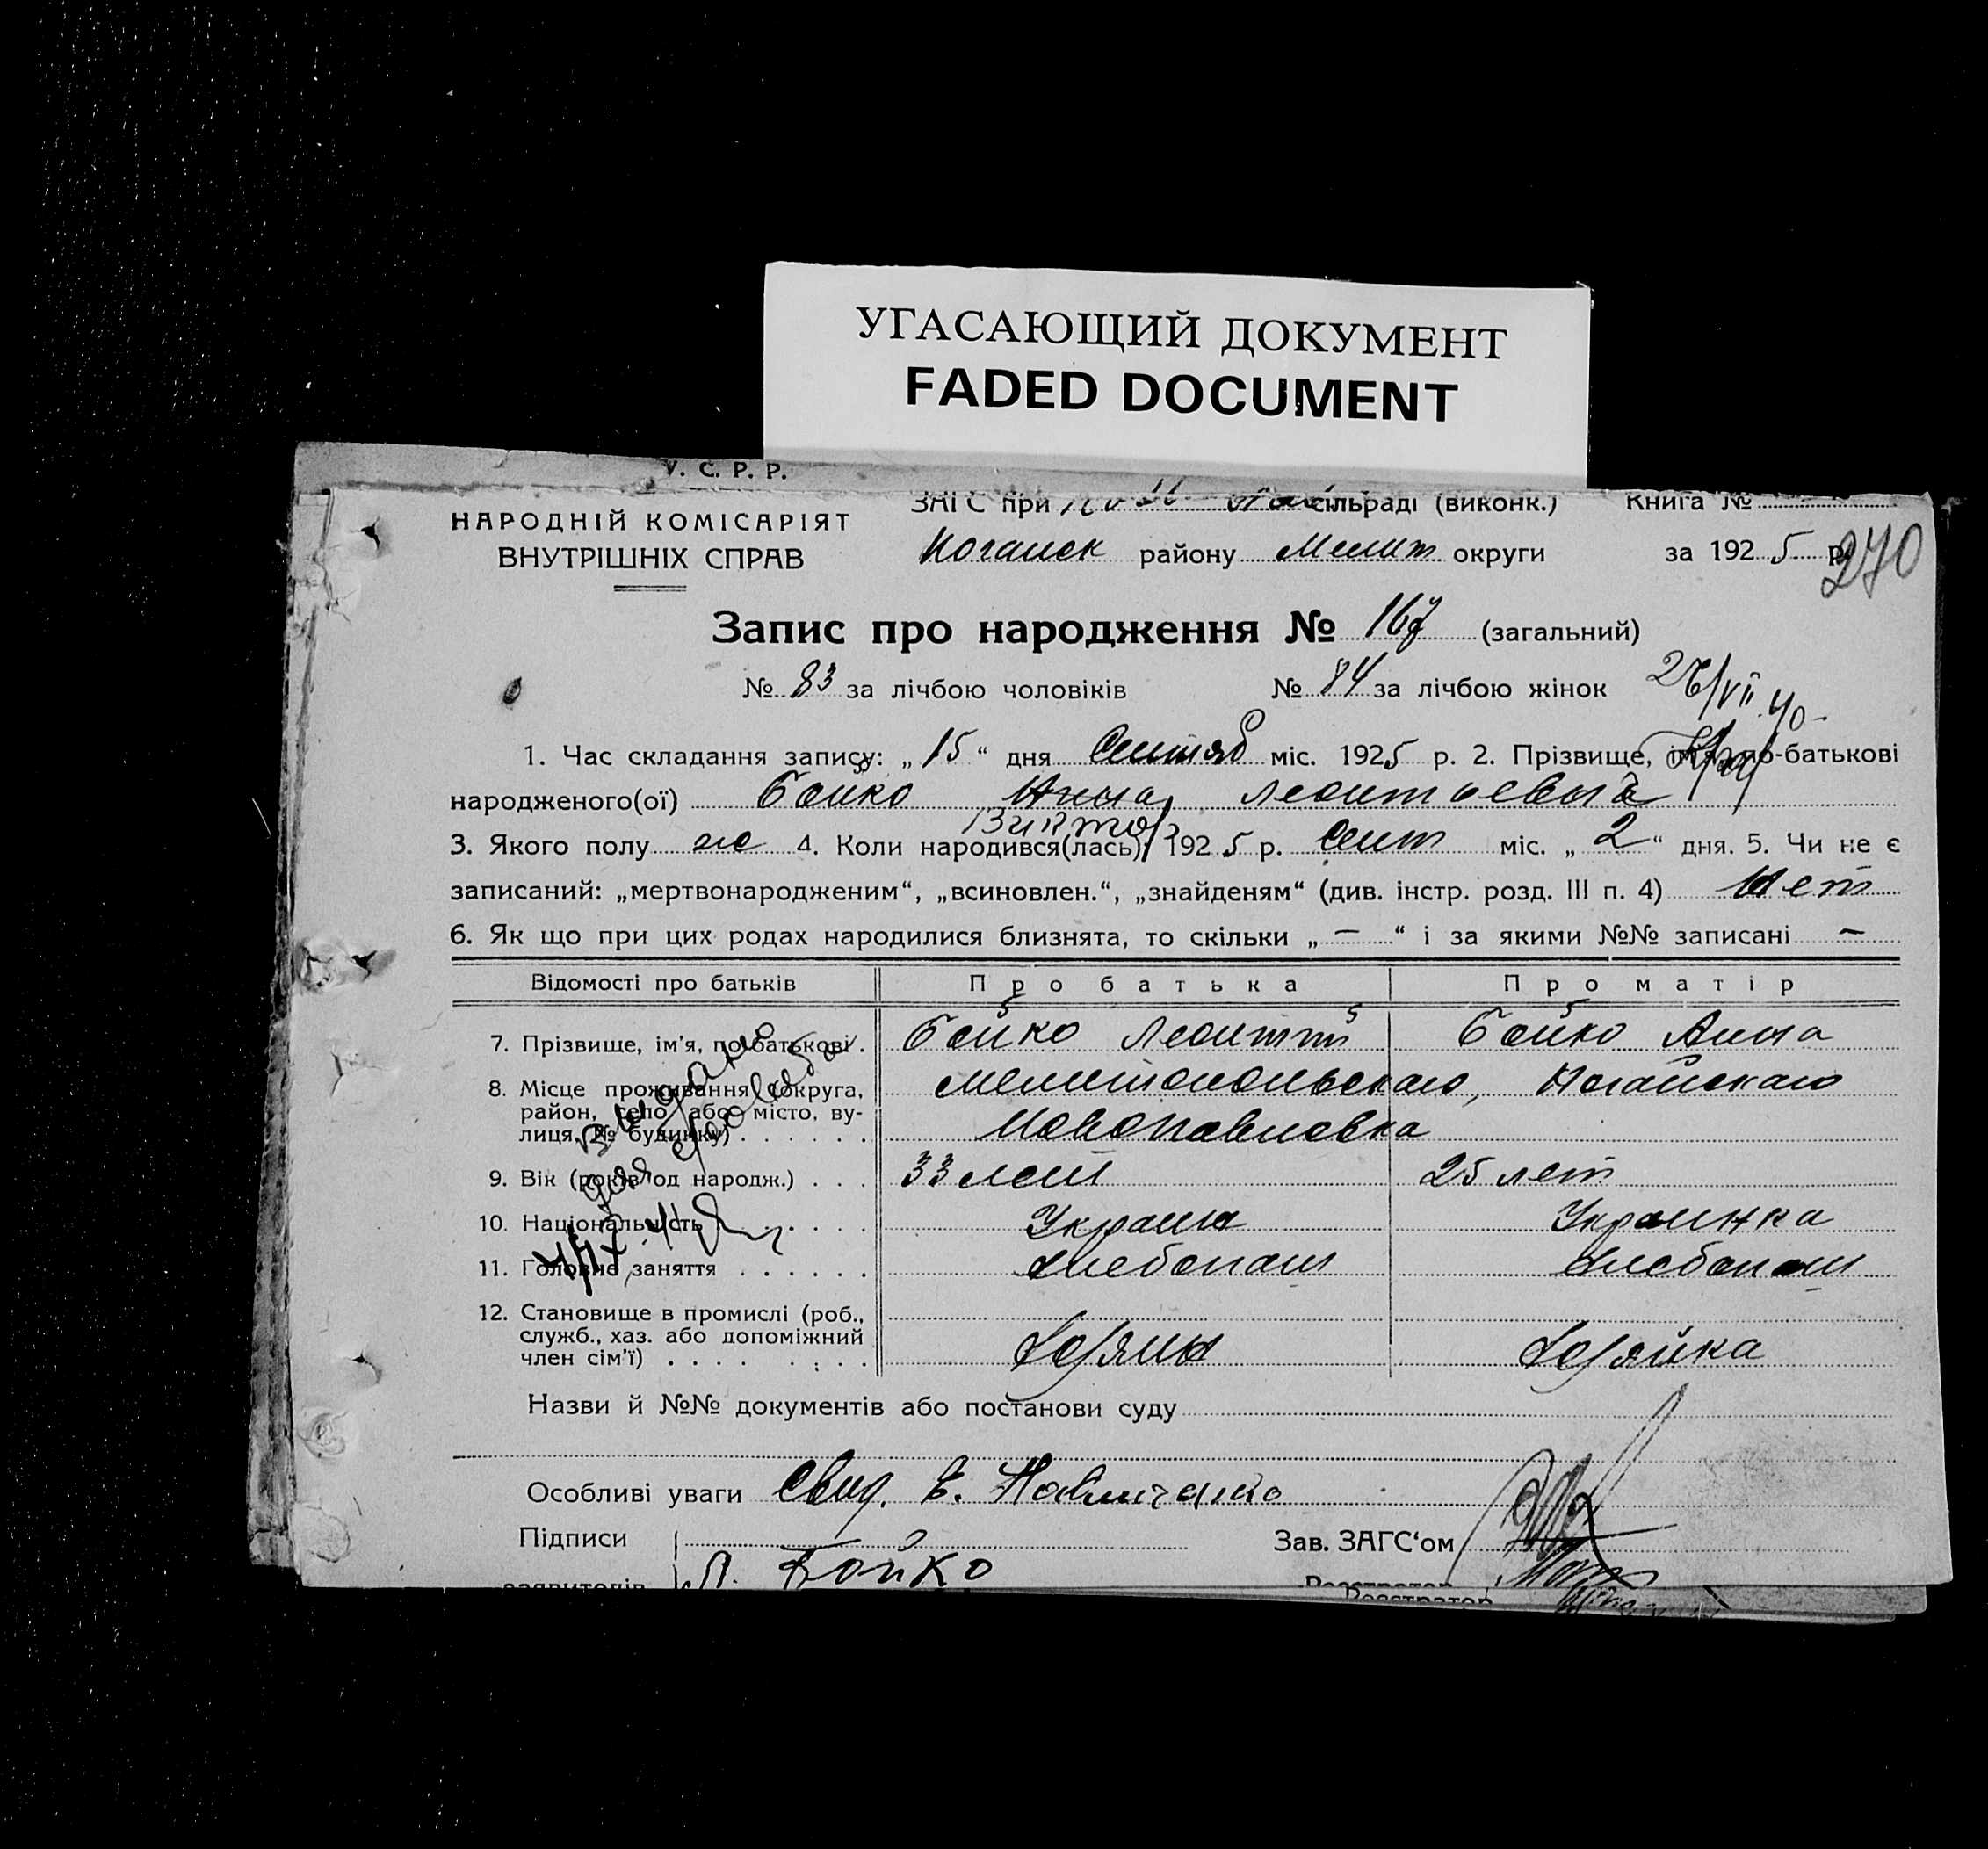 УГАСАЮЩИЙ ДОКУМЕНТ
FADED DOCUMENT
У. С. Р. Р.
НАРОДНІЙ КОМІСАРІЯТ
ВНУТРІШНІХ СПРАВ
ЗАГС при сільраді (виконк.) Книга №
Ногайск району Мелит округи за 1925 р.
270
Запис про народження № 167 (загальний)
№ 83 за лічбою чоловіків № 84 за лічбою жінок
1. Час складання запису: „15“ дня Сентяб міс. 1925 р. 2. Прізвище, ім'я, по-батькові
народженого(ої) Бойко Анна Леонтьевна
Виктор
3. Якого полу же 4. Коли народився(лась) 1925 р. Сент міс. „2“ дня. 5. Чи не є
записаний: „мертвонародженим“, „всиновлен.“, „знайденям“ (див. інстр. розд. III п. 4) Нет
6. Як що при цих родах народилися близнята, то скільки „—“ і за якими №№ записані —
Відомості про батьків Про батька Про матір
7. Прізвище, ім'я, по-батькові . Бойко Леонтий Бойко Анна
8. Місце проживання (округа, Мелитопольскаго, Ногайскаго
район, село або місто, ву-
лиця, № будинку) . . . . . . Новопавловка
9. Вік (років од народж.) . . . 33 лет 25 лет
10. Національність . . . . . Украин Украинка
11. Головне заняття . . . . . . Хлебопаш Хлебопаш
12. Становище в промислі (роб.,
служб., хаз. або допоміжний
член сім'ї) . . . . . . . Хозяин Хозяйка
Назви й №№ документів або постанови суду
Особливі уваги Свид. Е. Павличенко
Підписи Зав. ЗАГС‘ом
заявителів Л. Бойко Реєстратор
Реєстратор